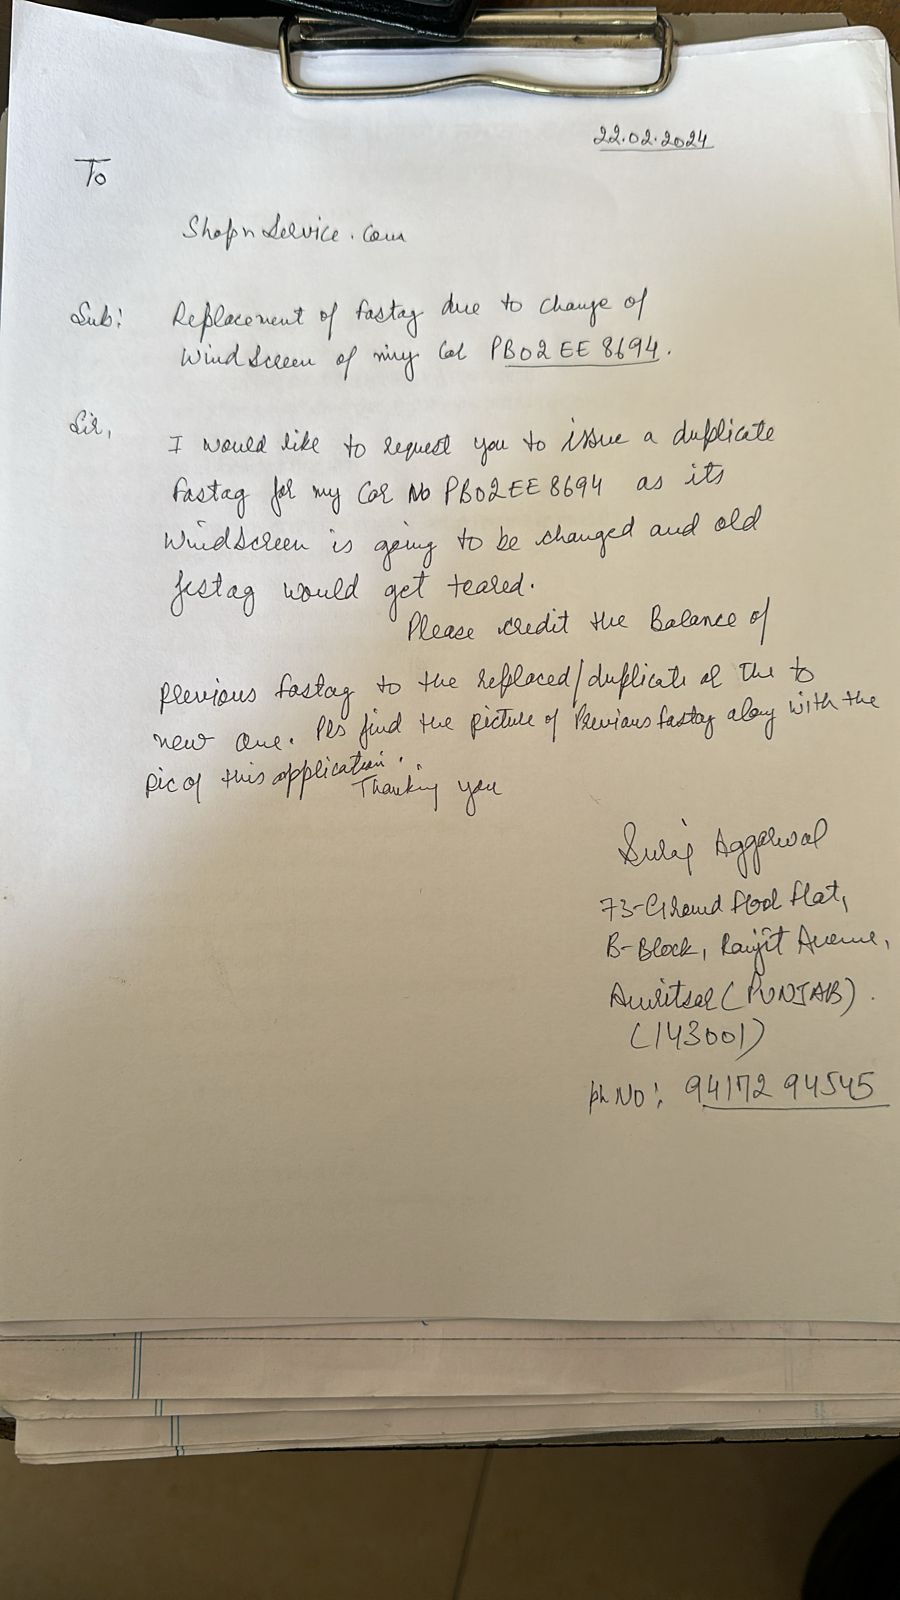 22.02.2024
To
Shopnservice.com
Sub: Replacement of fastag due to change of
Windscreen of my Car PB02EE8694.
Sir,
I would like to request you to issue a duplicate
fastag for my Car No PB02EE8694 as its
Windscreen is going to be changed and old
fastag would get teared.
Please credit the Balance of
previous fastag to the replaced/duplicate or the to
new one. Pls find the picture of Previous fastag along with the
pic of this application.
Thanking you
Suraj Aggarwal
73-Ground floor flat,
B-Block, Ranjit Avenue,
Amritsar (PUNJAB).
(143001)
Ph No: 94172 94545